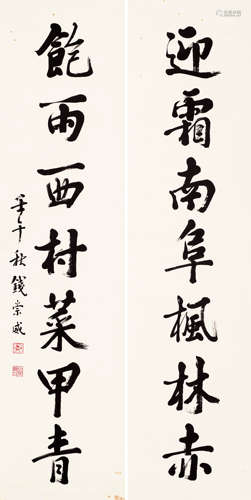 迎霜南阜楓林赤
飽雨西村菜甲青
壬午秋錢崇威